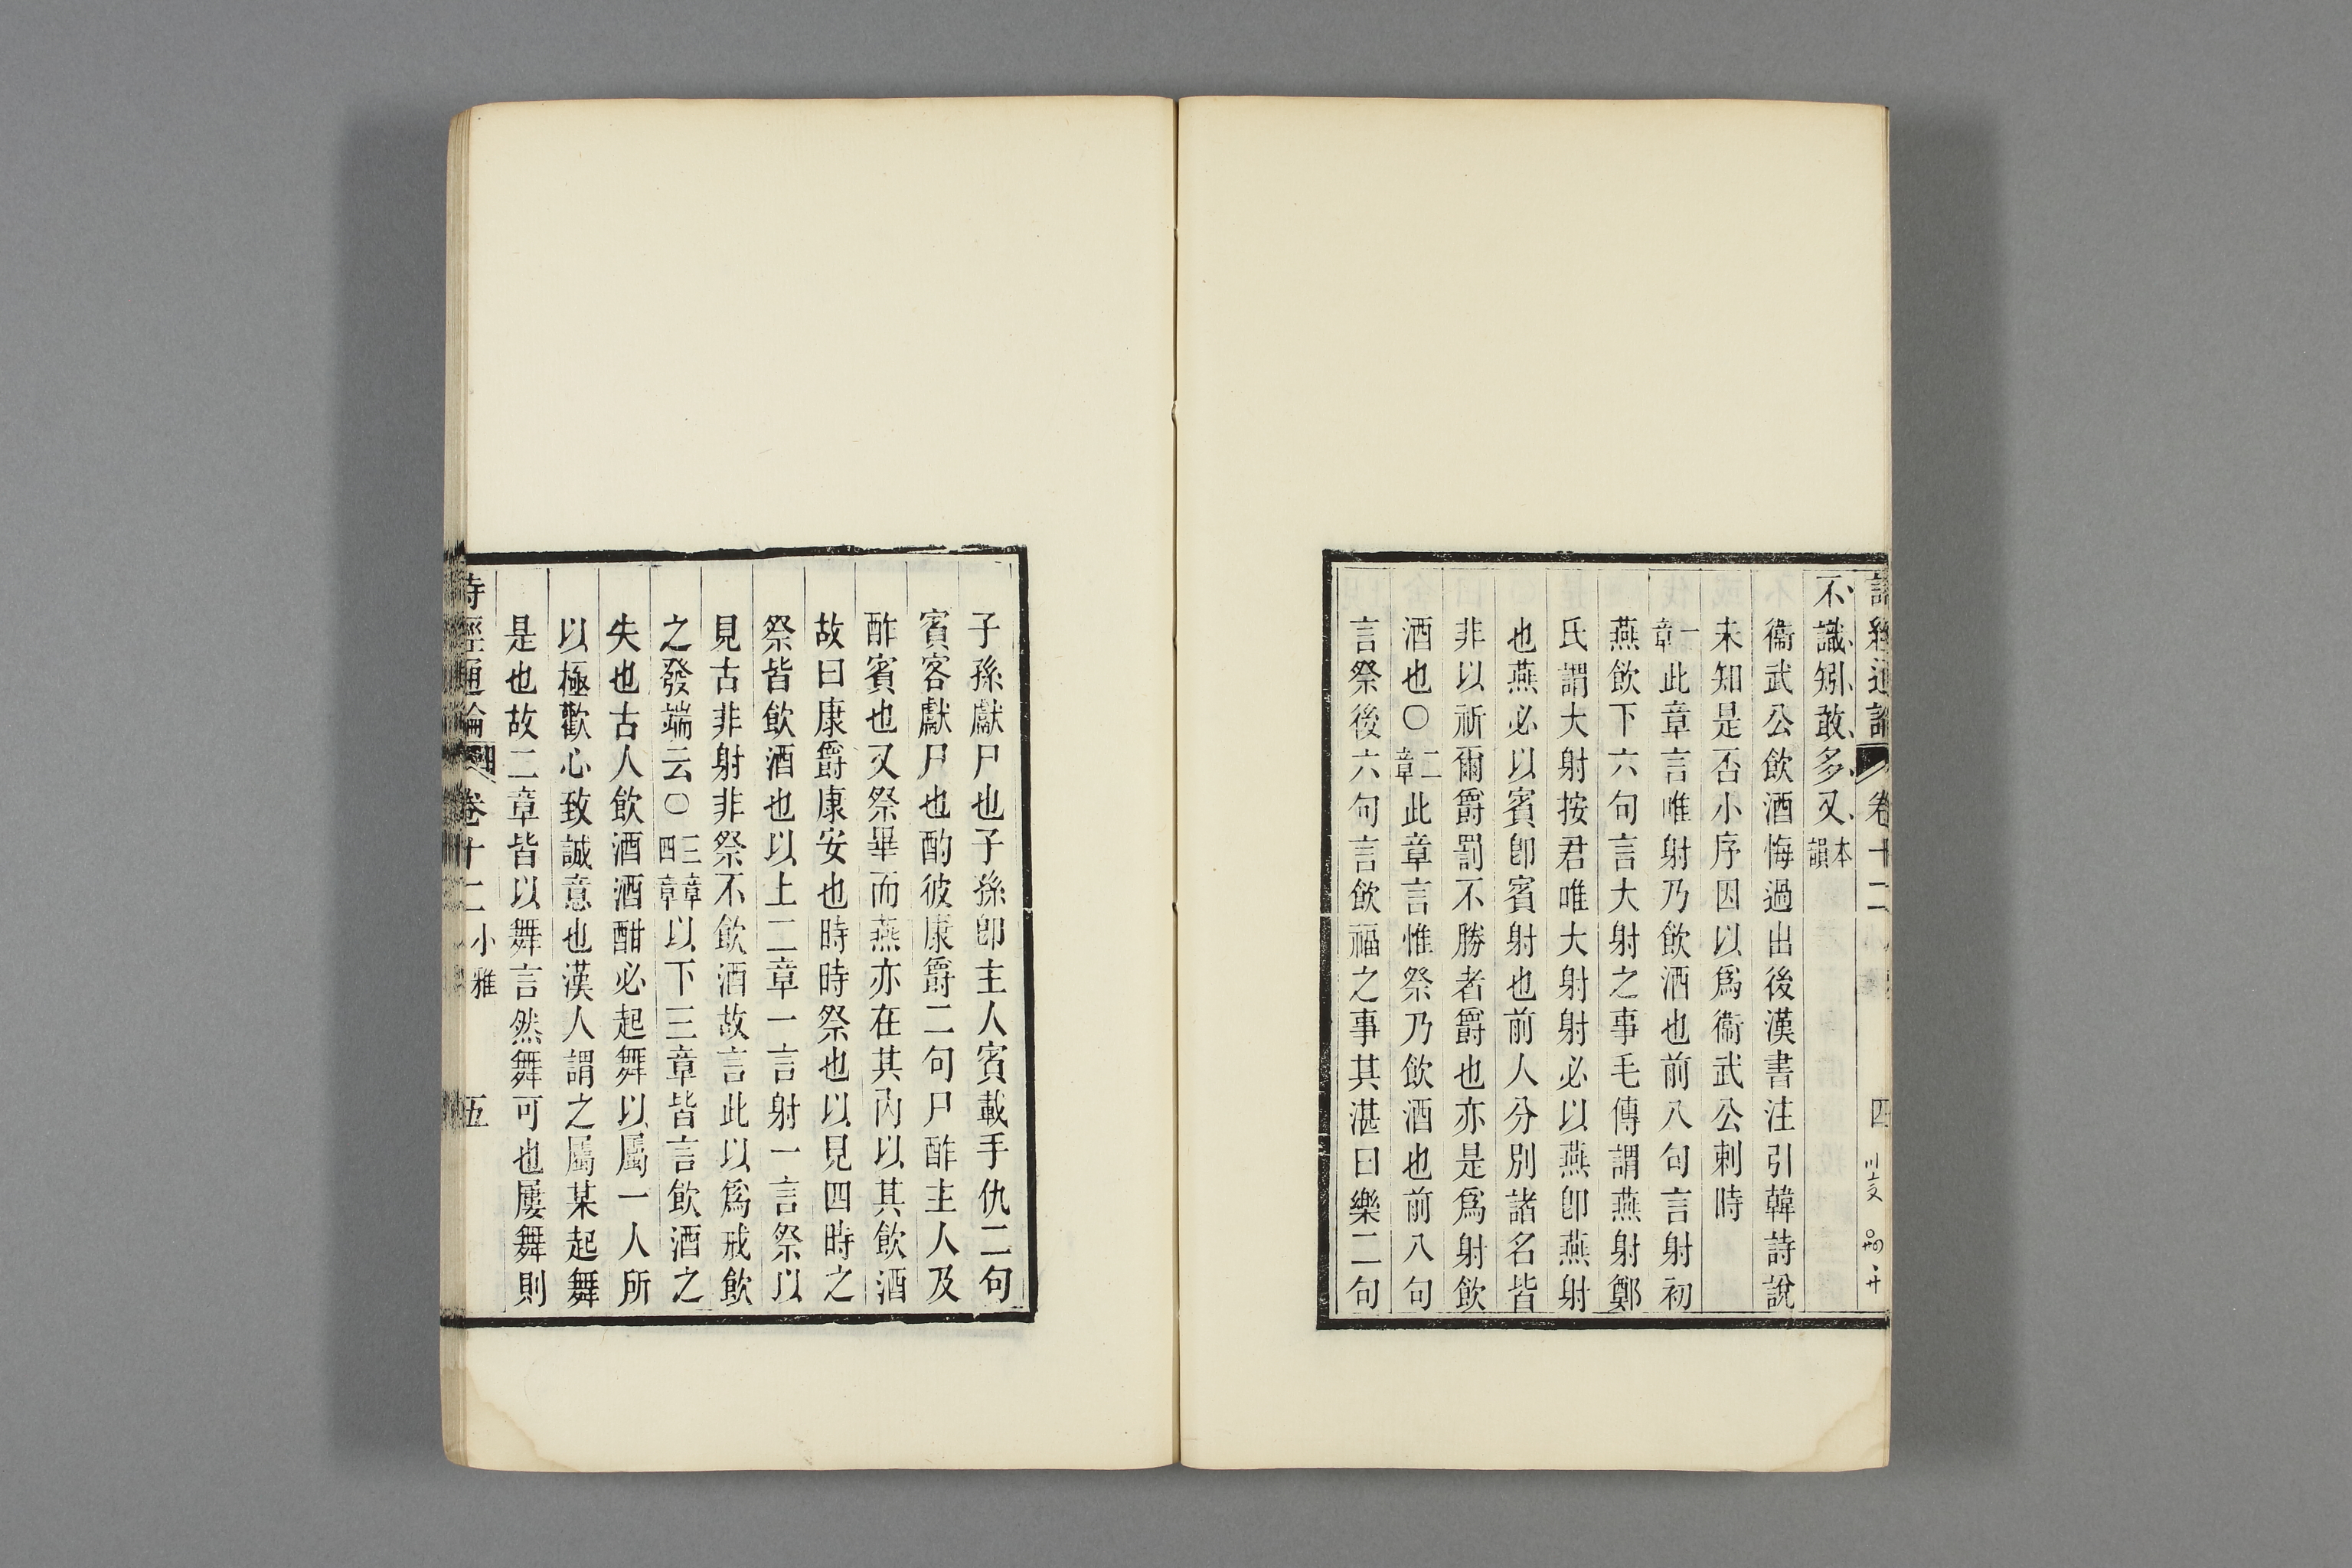 不識矧敢多又本韻
衞武公飲酒悔過出後漢書注引韓詩說
未知是否小序因以爲衞武公刺時
一章此章言唯射乃飲酒也前八句言射初
燕飲下六句言大射之事毛傳謂燕射鄭
氏謂大射按君唯大射射必以燕卽燕射
也燕必以賓卽賓射也前人分別諸名皆
非以祈爾爵罰不勝者爵也亦是爲射飲
酒也〇二章此章言惟祭乃飲酒也前八句
言祭後六句言飲福之事其湛曰樂二句
子孫獻尸也子孫卽主人賓載手仇二句
賓客獻尸也酌彼康爵二句尸酢主人及
酢賓也又祭畢而燕亦在其內以其飲酒
故曰康爵康安也時時祭也以見四時之
祭皆飲酒也以上二章一言射一言祭以
見古非射非祭不飲酒故言此以爲戒飲
之發端云〇三章四章以下三章皆言飲酒之
失也古人飲酒酒酣必起舞以屬一人所
以極歡心致誠意也漢人謂之屬某起舞
是也故二章皆以舞言然舞可也屢舞則
詩經通論 卷十二 小雅 五